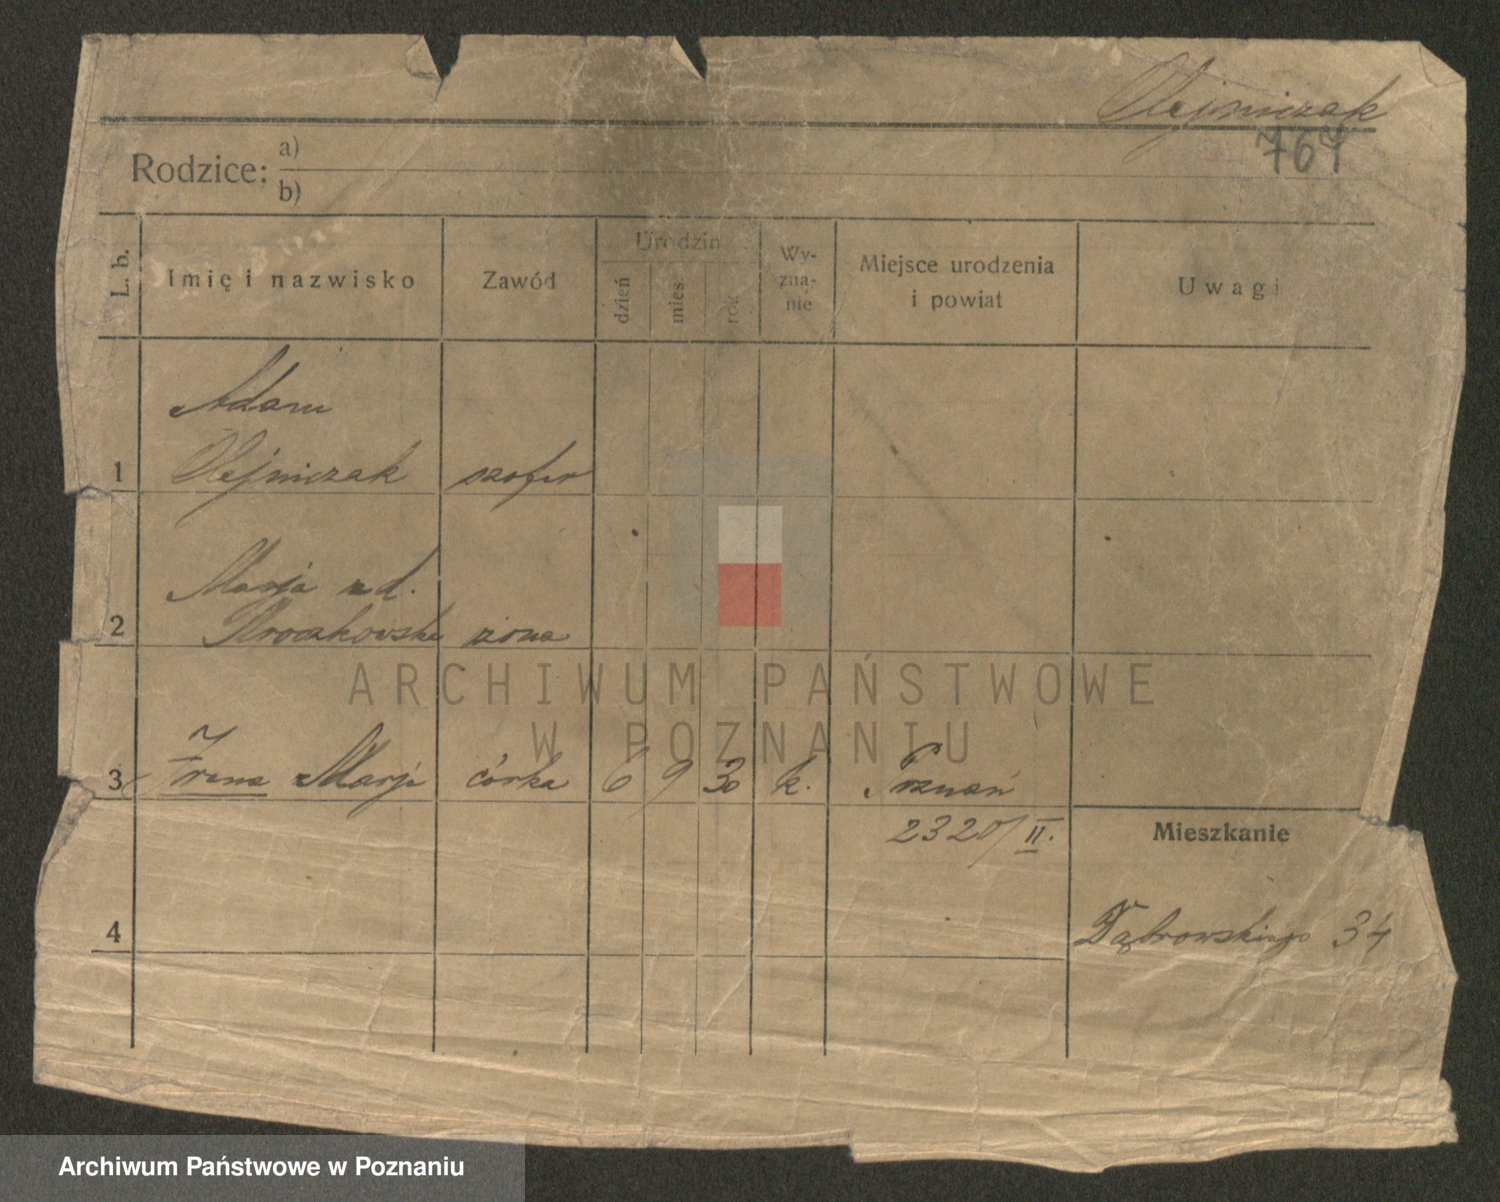 Olejniczak
767
Rodzice: a)
b)
L. b. Imię i nazwisko Zawód Urodzin dzień mies. rok Wy-zna-nie Miejsce urodzenia i powiat Uwagi
Adam
1 Olejniczak szofer
Marja zd.
2 żona
3 Irena Marja córka 6 9 30 k. Poznań
2320/II.
Mieszkanie
4 Dąbrowskiego 34
ARCHIWUM PAŃSTWOWE
W POZNANIU
Archiwum Państwowe w Poznaniu